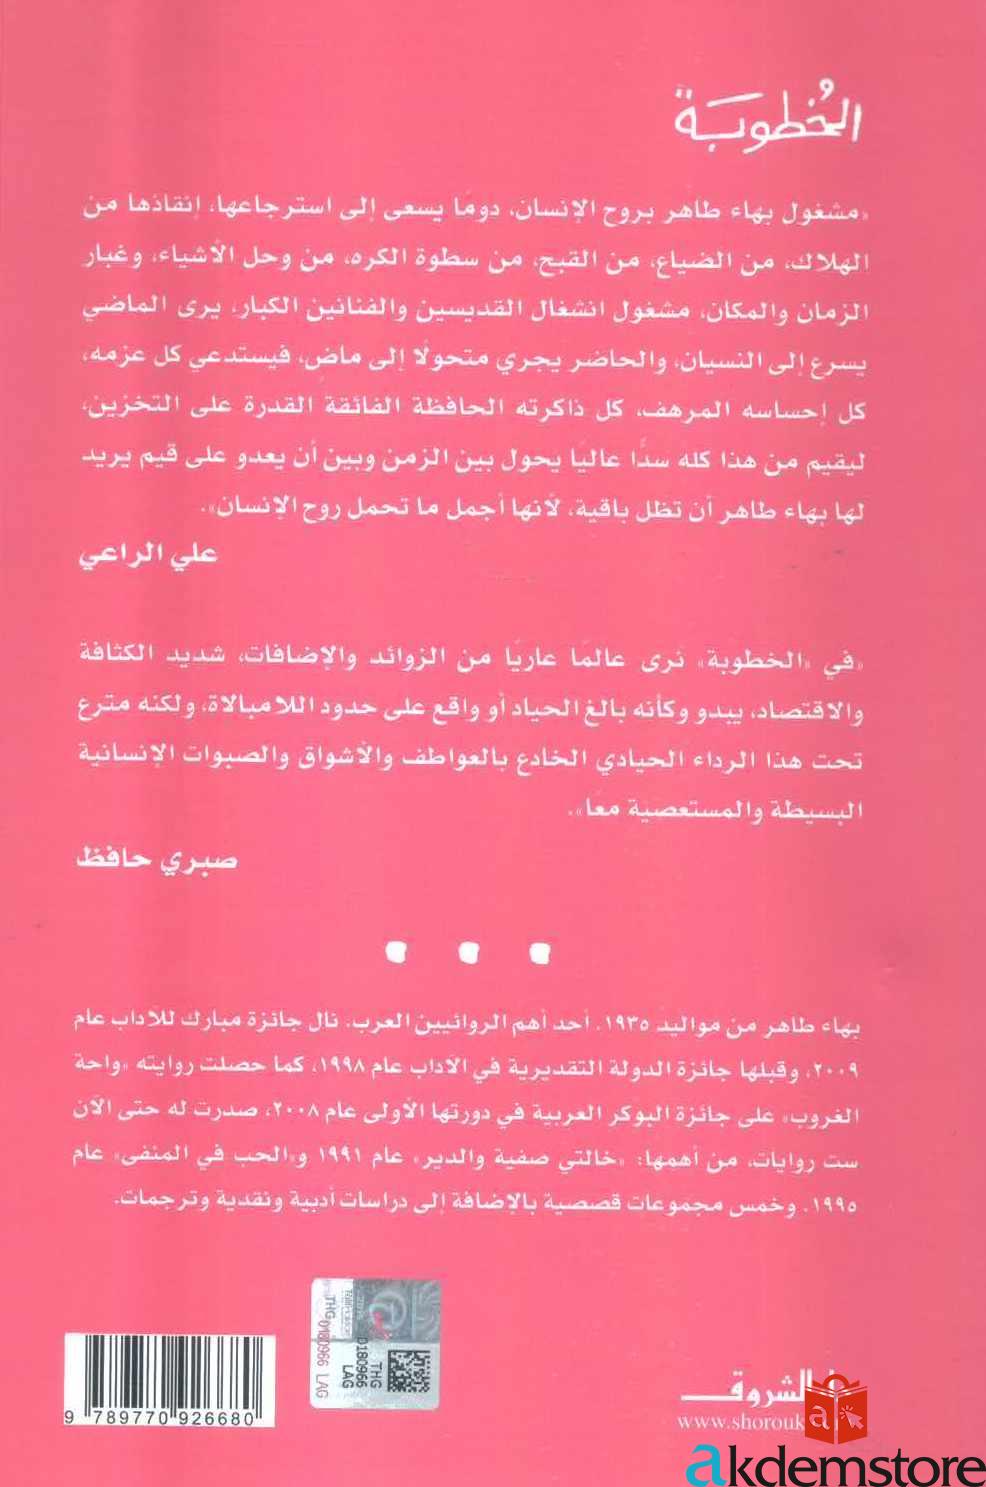 الخُطوبة
«مشغول بهاء طاهر بروح الإنسان، دومًا يسعى إلى استرجاعها، إنقاذها من
الهلاك، من الضياع، من القبح، من سطوة الكره، من وحل الأشياء، وغبار
الزمان والمكان، مشغول انشغال القديسين والفنانين الكبار، يرى الماضي
يسرع إلى النسيان، والحاضر يجري متحولًا إلى ماضٍ، فيستدعي كل عزمه،
كل إحساسه المرهف، كل ذاكرته الحافظة الفائقة القدرة على التخزين،
ليقيم من هذا كله سدًّا عاليًا يحول بين الزمن وبين أن يعدو على قيم يريد
لها بهاء طاهر أن تظل باقية، لأنها أجمل ما تحمل روح الإنسان».
علي الراعي
«في «الخطوبة» نرى عالمًا عاريًا من الزوائد والإضافات، شديد الكثافة
والاقتصاد، يبدو وكأنه بالغ الحياد أو واقع على حدود اللامبالاة، ولكنه مترع
تحت هذا الرداء الحيادي الخادع بالعواطف والأشواق والصبوات الإنسانية
البسيطة والمستعصية معًا».
صبري حافظ
بهاء طاهر من مواليد ١٩٣٥. أحد أهم الروائيين العرب. نال جائزة مبارك للآداب عام
٢٠٠٩، وقبلها جائزة الدولة التقديرية في الآداب عام ١٩٩٨، كما حصلت روايته «واحة
الغروب» على جائزة البوكر العربية في دورتها الأولى عام ٢٠٠٨، صدرت له حتى الآن
ست روايات، من أهمها: «خالتي صفية والدير» عام ١٩٩١ و«الحب في المنفى» عام
١٩٩٥. وخمس مجموعات قصصية بالإضافة إلى دراسات أدبية ونقدية وترجمات.
THG
0180966 LAG
THG
0180966
LAG
9 789770 926680
الشروق
www.shorouk
a
akdemstore